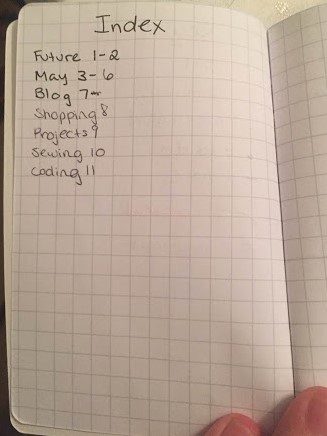 Index
Future 1-2
May 3-6
Blog 7-
Shopping 8
Projects 9
Sewing 10
Coding 11